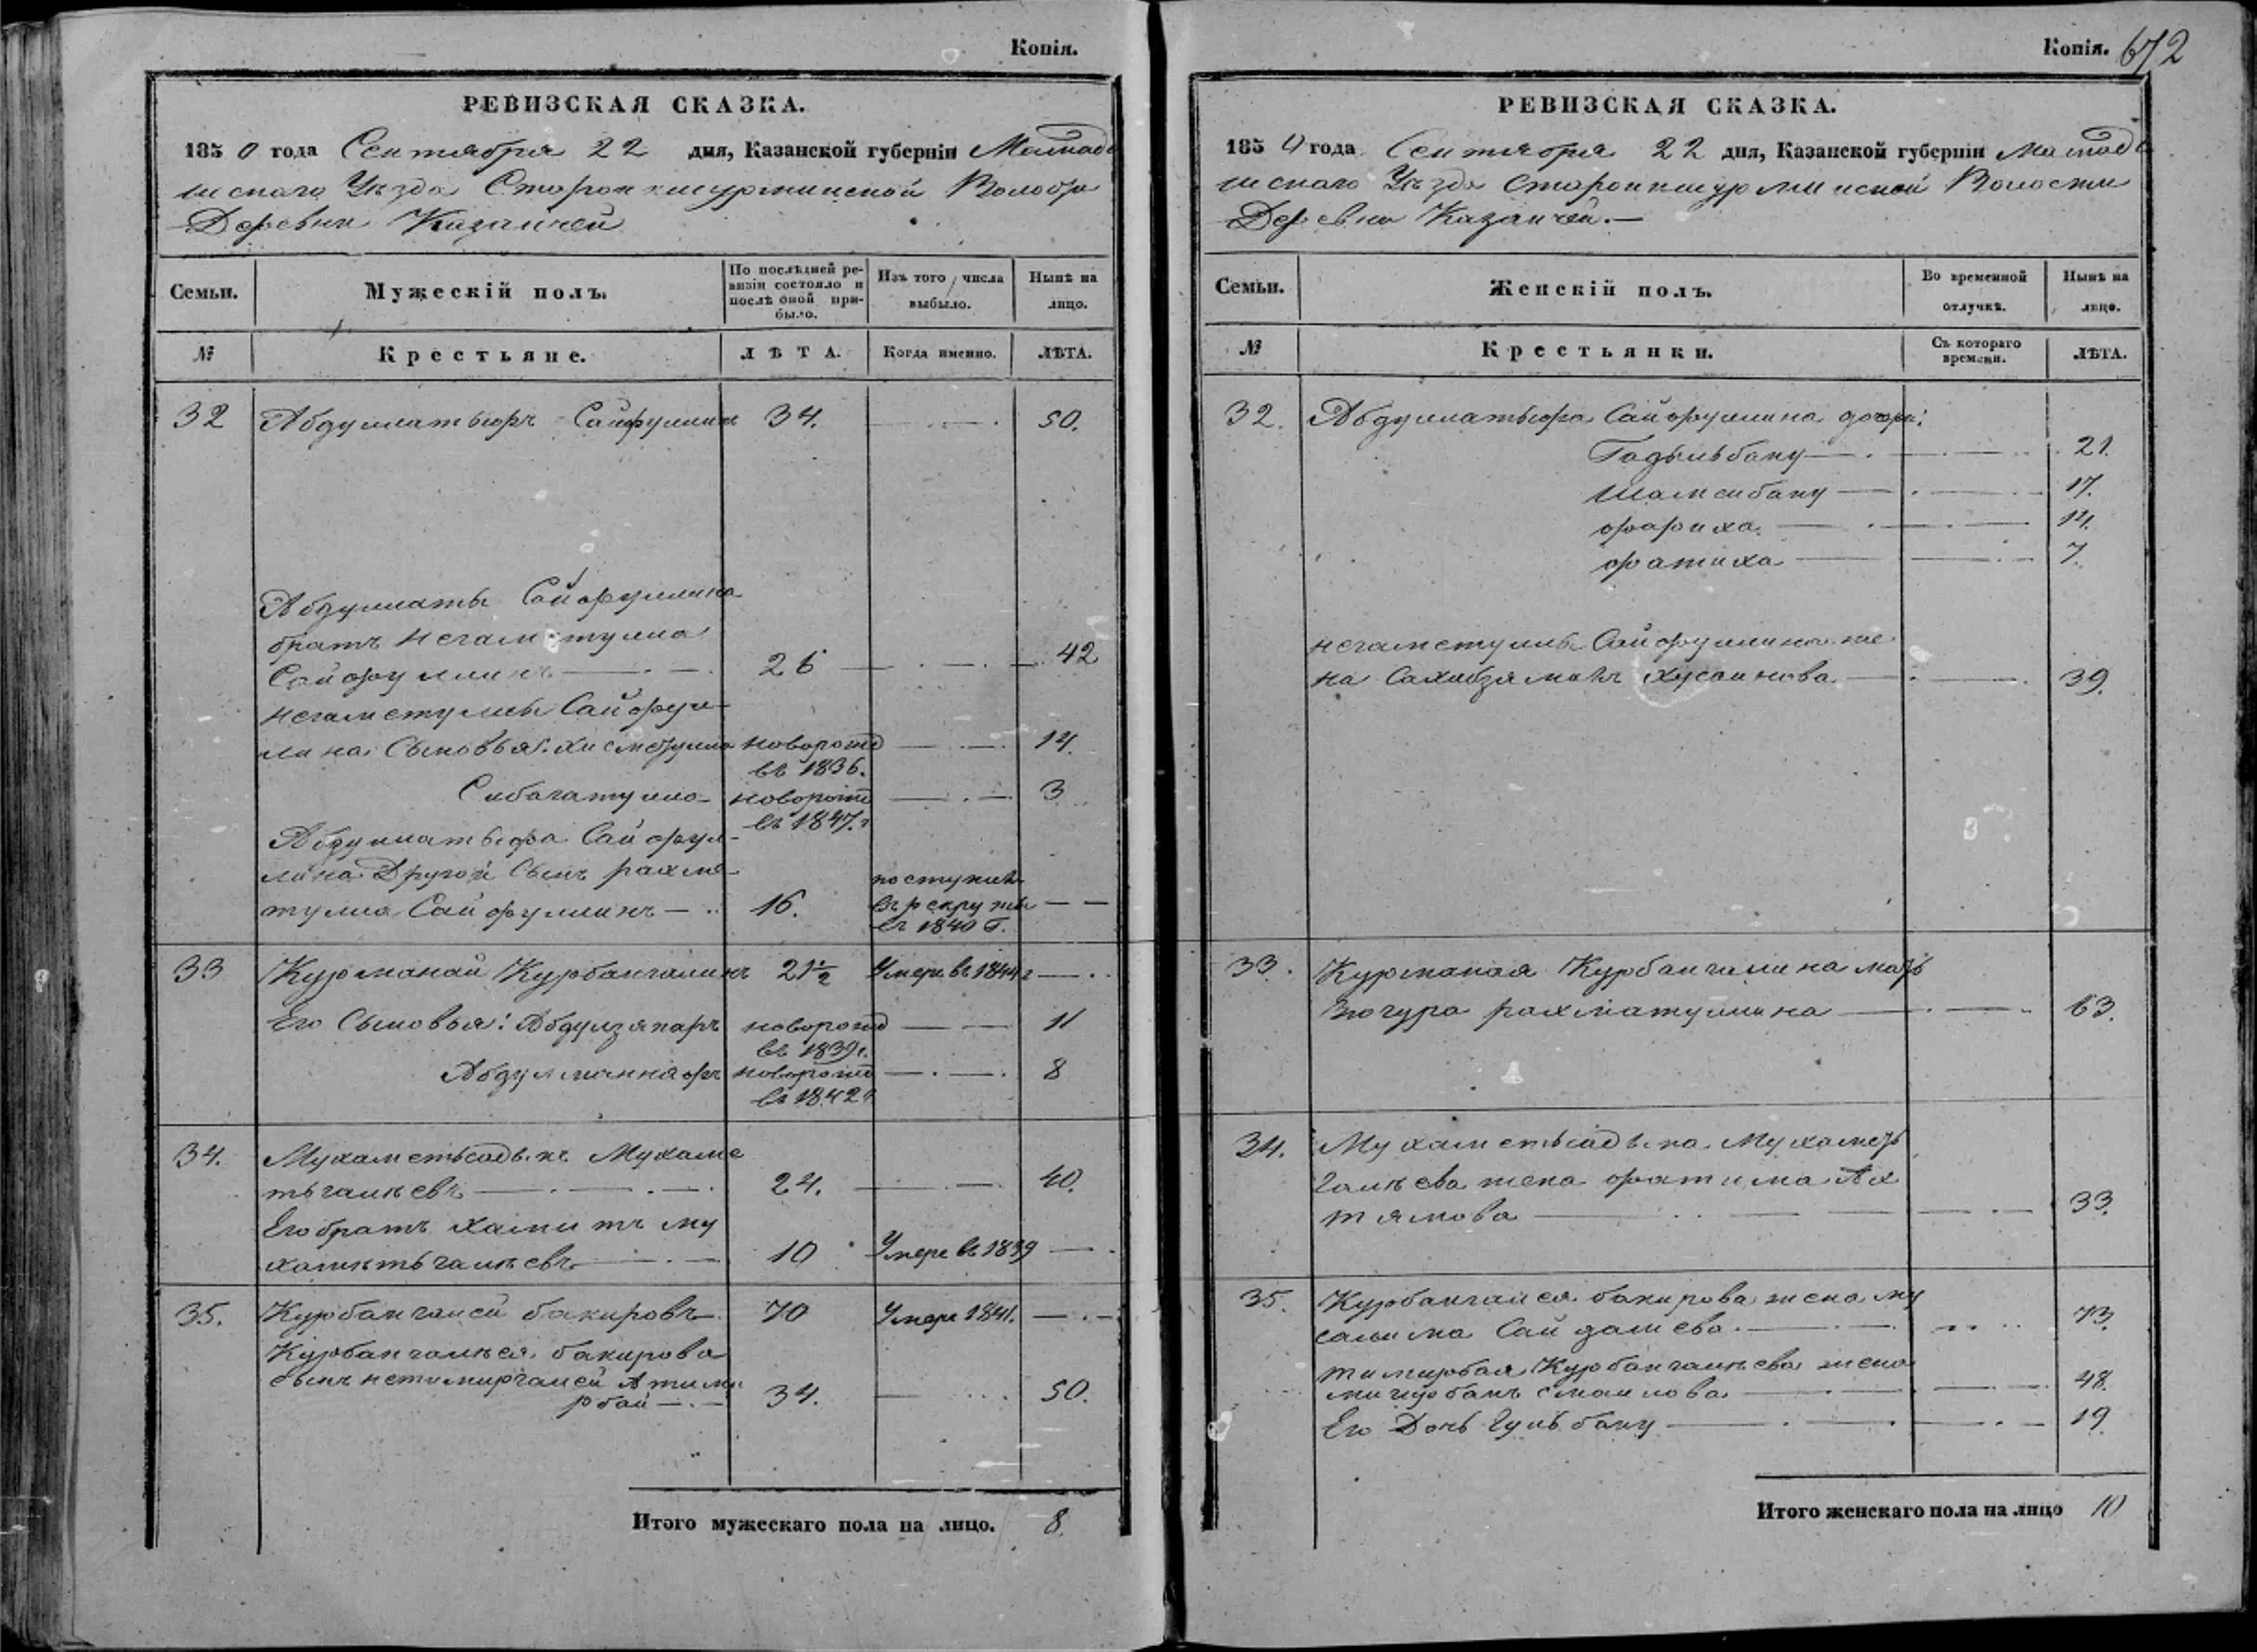 Копія.
РЕВИЗСКАЯ СКАЗКА.
1850 года Сентября 22 дня, Казанской губерніи Мамады
шскаго Уѣзда Старокумурлинской Волости
Деревни Казанчей
Семьи. Мужескій полъ. По послѣдней ревизіи состояло и послѣ оной прибыло. Изъ того числа выбыло. Нынѣ на лицо.
№ Крестьяне. ЛѢТА. Когда именно. ЛѢТА.
32 Абдуллатыфъ Сайфуллинъ 34. 50.
Абдуллаты Сайфуллина
братъ Негаметулла
Сайфуллинъ 26 42
Негаметуллы Сайфул-
лина Сыновья: Хисметулла новорожд 14.
въ 1836.
Сибагатулла новорожд 3
въ 1847. г
Абдуллатыфа Сайфул-
лина Другой Сынъ рахма- поступилъ
тулла Сайфуллинъ 16. въ рекруты
въ 1840 г.
33 Курманай Курбангалинъ 21½ Умеръ въ 1844 г
Его Сыновья: Абдулзяпаръ новорожд 11
въ 1839 г.
Абдулманнафъ новорожд 8
въ 1842 г
34. Мухаметьсадыкъ Мухаме
тьгалѣевъ 24. 40.
Его братъ Хамитъ Му
хаметьгалѣевъ 10 Умеръ въ 1839
35. Курбангалей бакировъ 70 Умеръ 1841.
Курбангалѣя бакирова
сынъ нетимиргалей А тими
рбай 34. 50.
Итого мужескаго пола на лицо. 8.
Копія. 672
РЕВИЗСКАЯ СКАЗКА.
1850 года Сентября 22 дня, Казанской губерніи Мамады
шскаго Уѣзда Старокумурлинской Волости
Деревни Казанчей.
Семьи. Женскій полъ. Во временной отлучкѣ. Нынѣ на лицо.
№ Крестьянки. Съ котораго времени. ЛѢТА.
32. Абдуллатыфа Сайфуллина дочери:
Гадыльбану 21.
Шамсибану 17.
фариха 14.
фатиха 7.
Негаметуллы Сайфуллина же
на Сахибзямалъ Хусаинова 39.
33. Курманая Курбангалина мать
Зюгура рахматуллина 63.
34. Мухаметьсадыка Мухаметь
галѣева жена фатима Ах
тямова 33.
35. Курбангалея бакирова жена му
салима Сайдалиева 73.
тимирбая Курбангалѣева жена
смаилова 48.
Его Дочь Гульбану 19
Итого женскаго пола на лицо 10